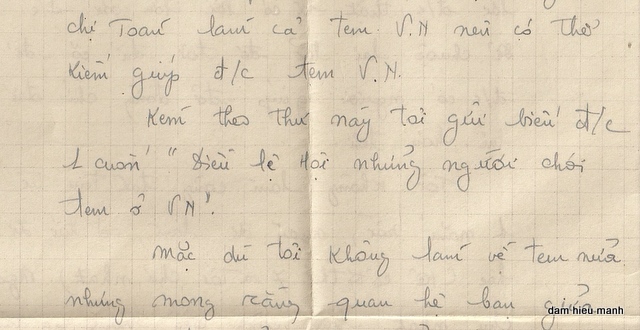 chị Toán làm cả tem V.N nên có thể
kiếm giúp đ/c tem V.N.
Kèm theo thư này tôi gửi biếu đ/c
1 cuốn "Điều lệ Hội những người chơi
tem ở VN".
Mặc dù tôi không làm về tem nữa
nhưng mong rằng quan hệ bạn giữa
dam hieu manh